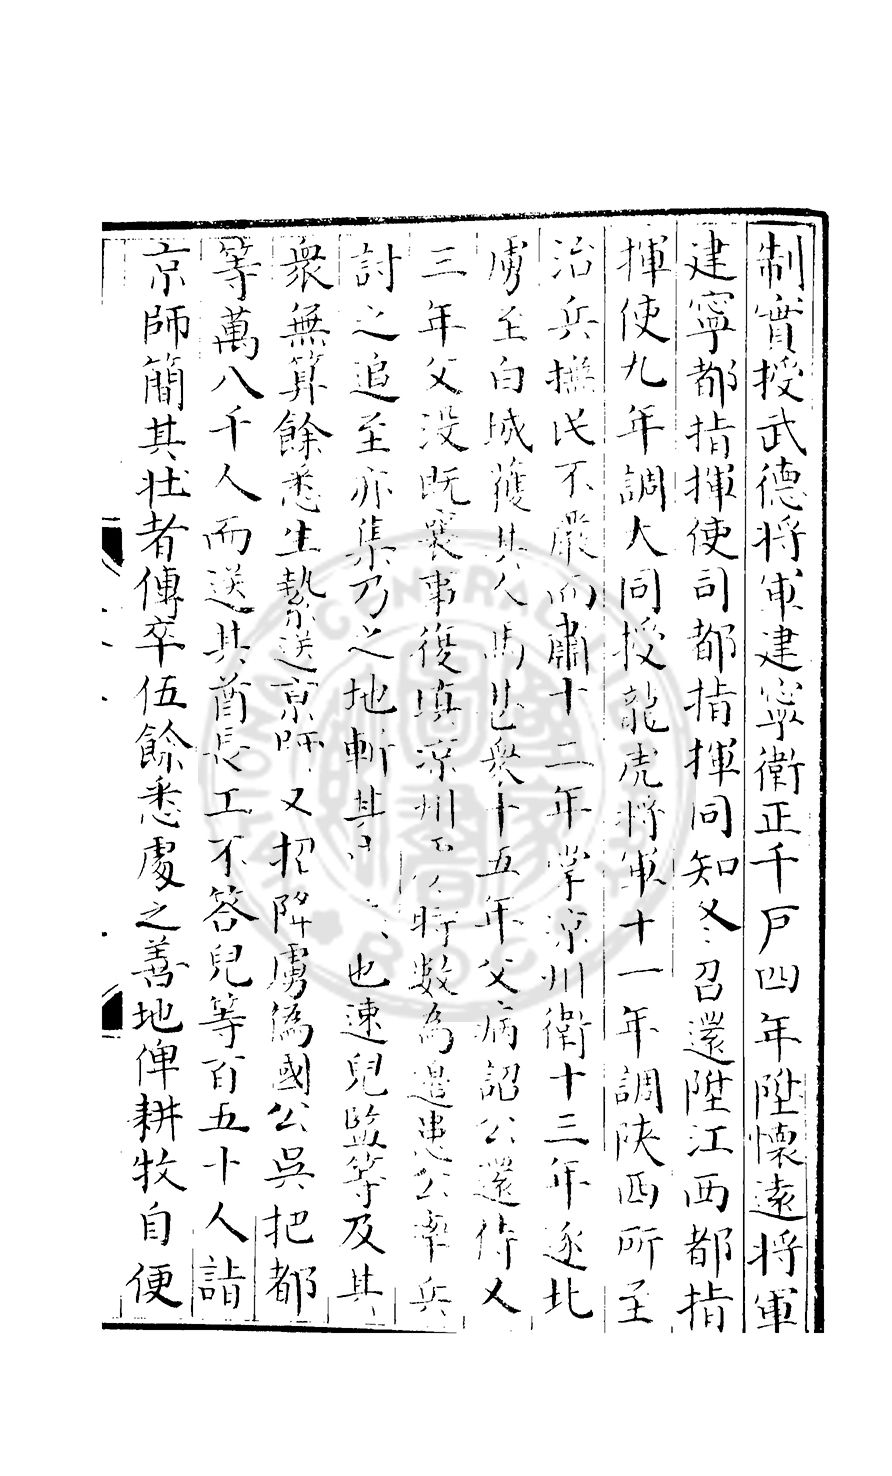 制實授武德將軍建寧衛正千戶四年陞懷遠將軍
建寧都指揮使司都指揮同知冬召還陞江西都指
揮使九年調大同授龍虎將軍十一年調陝西所至
治兵撫民不嚴而肅十二年掌涼州衛十三年逐北
虜至白城獲其人馬甚衆十五年父病詔公還侍又
三年父没既襄事復填涼州 將數為邉患公率兵
討之追至亦集乃之地斬其 也速兒監等及其
衆無算餘悉生縶送京師又招降虜僞國公吳把都
等萬八千人而送其酋長工不答兒等百五十人詣
京師簡其壯者傅卒伍餘悉處之善地俾耕牧自便
NATIONAL CENTRAL LIBRARY
R.O.C.
國家圖書館